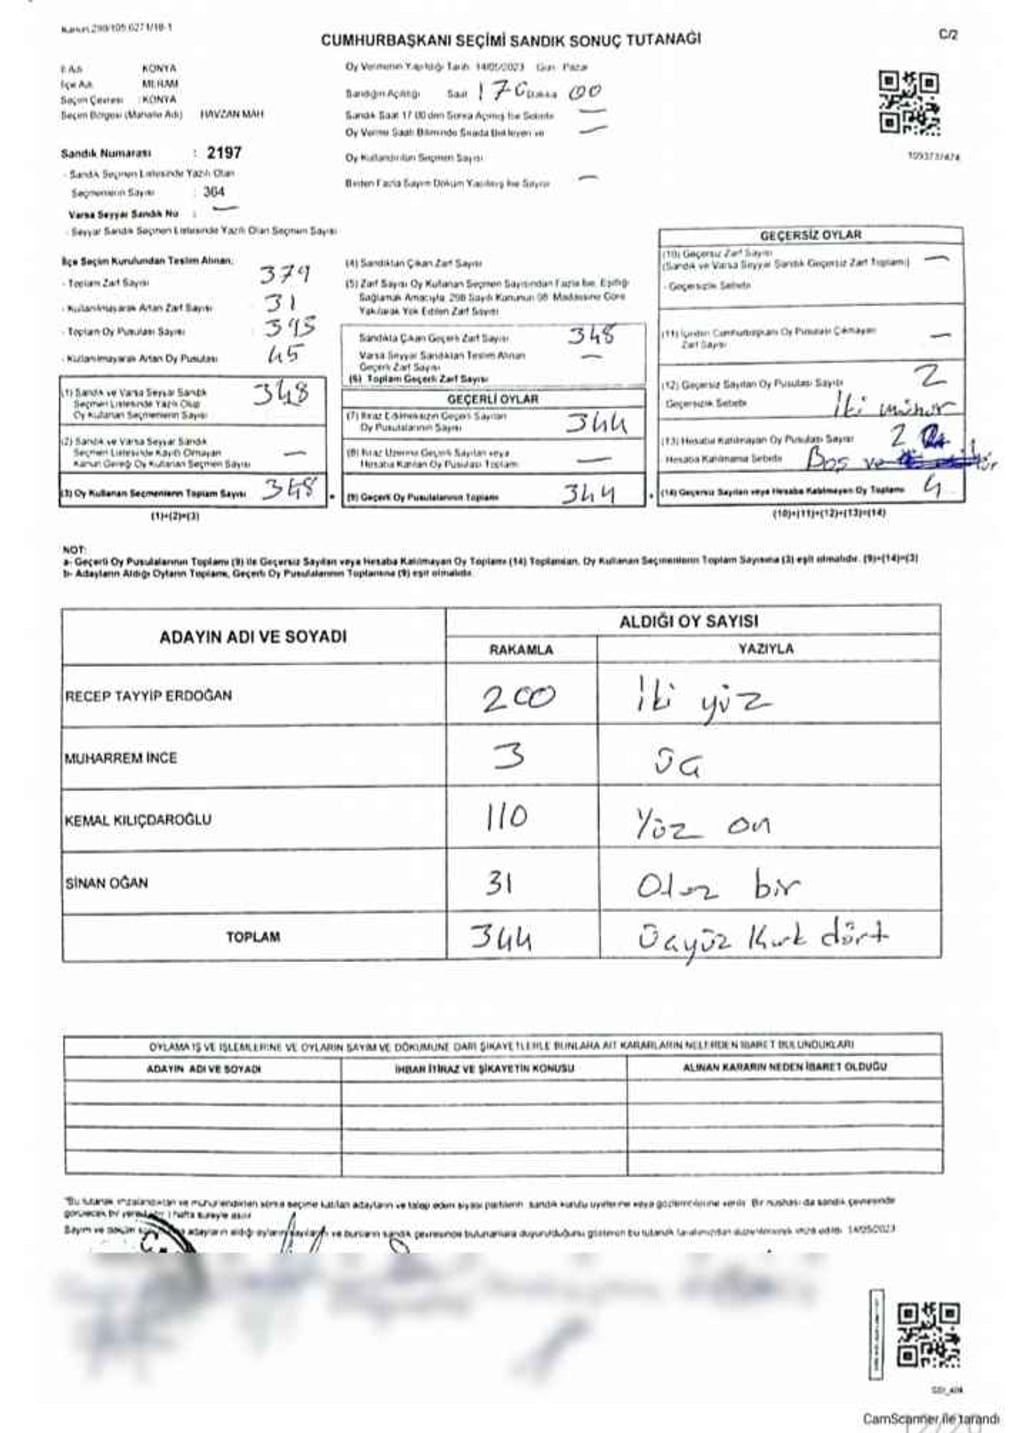 Kanun 298/105 6271/18-1
C/2
CUMHURBAŞKANI SEÇİMİ SANDIK SONUÇ TUTANAĞI
İl Adı KONYA
İlçe Adı MERAM
Seçim Çevresi : KONYA
Seçim Bölgesi (Mahalle Adı) HAVZAN MAH
Sandık Numarası : 2197
- Sandık Seçmen Listesinde Yazılı Olan
Seçmenlerin Sayısı : 364
Varsa Seyyar Sandık No : —
- Seyyar Sandık Seçmen Listesinde Yazılı Olan Seçmen Sayısı
Oy Vermenin Yapıldığı Tarih 14/05/2023 Gün Pazar
Sandığın Açıldığı Saat 17 Dakika 00
Sandık Saat 17.00 den Sonra Açılmış İse Sebebi —
Oy Verme Saati Bitiminde Sırada Bekleyen ve —
Oy Kullandırılan Seçmen Sayısı
Birden Fazla Sayım Döküm Yapılmış İse Sayısı —
1093737474
İlçe Seçim Kurulundan Teslim Alınan;
- Toplam Zarf Sayısı 379
- Kullanılmayarak Artan Zarf Sayısı 31
- Toplam Oy Pusulası Sayısı : 393
- Kullanılmayarak Artan Oy Pusulası 45
(1) Sandık ve Varsa Seyyar Sandık
Seçmen Listesinde Yazılı Olup
Oy Kullanan Seçmenlerin Sayısı 348
(2) Sandık ve Varsa Seyyar Sandık
Seçmen Listesinde Kayıtlı Olmayan
Kanun Gereği Oy Kullanan Seçmen Sayısı —
(3) Oy Kullanan Seçmenlerin Toplam Sayısı 348
(1)+(2)=(3)
(4) Sandıktan Çıkan Zarf Sayısı
(5) Zarf Sayısı Oy Kullanan Seçmen Sayısından Fazla İse, Eşitliği
Sağlamak Amacıyla 298 Sayılı Kanunun 98. Maddesine Göre
Yakılarak Yok Edilen Zarf Sayısı
Sandıkta Çıkan Geçerli Zarf Sayısı 348
Varsa Seyyar Sandıktan Teslim Alınan
Geçerli Zarf Sayısı —
(6) Toplam Geçerli Zarf Sayısı
GEÇERLİ OYLAR
(7) İtiraz Edilmeksizin Geçerli Sayılan
Oy Pusulalarının Sayısı 344
(8) İtiraz Üzerine Geçerli Sayılan veya
Hesaba Katılan Oy Pusulası Toplamı —
(9) Geçerli Oy Pusulalarının Toplamı 344
GEÇERSİZ OYLAR
(10) Geçersiz Zarf Sayısı —
(Sandık ve Varsa Seyyar Sandık Geçersiz Zarf Toplamı)
- Geçersizlik Sebebi
(11) İçinden Cumhurbaşkanı Oy Pusulası Çıkmayan
Zarf Sayısı —
(12) Geçersiz Sayılan Oy Pusulası Sayısı 2
Geçersizlik Sebebi İki mühür
(13) Hesaba Katılmayan Oy Pusulası Sayısı 2
Hesaba Katılmama Sebebi Boş ve
(14) Geçersiz Sayılan veya Hesaba Katılmayan Oy Toplamı 4
(10)+(11)+(12)+(13)=(14)
NOT:
a- Geçerli Oy Pusulalarının Toplamı (9) ile Geçersiz Sayılan veya Hesaba Katılmayan Oy Toplamı (14) Toplamları, Oy Kullanan Seçmenlerin Toplam Sayısına (3) eşit olmalıdır. (9)+(14)=(3)
b- Adayların Aldığı Oyların Toplamı, Geçerli Oy Pusulalarının Toplamına (9) eşit olmalıdır.
ADAYIN ADI VE SOYADI ALDIĞI OY SAYISI
RAKAMLA YAZIYLA
RECEP TAYYİP ERDOĞAN 200 İki yüz
MUHARREM İNCE 3 Üç
KEMAL KILIÇDAROĞLU 110 Yüz on
SİNAN OĞAN 31 Otuz bir
TOPLAM 344 Üçyüz Kırk dört
OYLAMA İŞ VE İŞLEMLERİNE VE OYLARIN SAYIM VE DÖKÜMÜNE DAİR ŞİKAYETLERLE BUNLARA AİT KARARLARIN NELERDEN İBARET BULUNDUKLARI
ADAYIN ADI VE SOYADI İHBAR İTİRAZ VE ŞİKAYETİN KONUSU ALINAN KARARIN NEDEN İBARET OLDUĞU
"Bu tutanak imzalandıktan ve mühürlendikten sonra seçime katılan adayların ve talep eden siyasi partilerin sandık kurulu üyelerine veya gözlemcilerine verilir. Bir nüshası da sandık çevresinde
görülecek bir yere 1 hafta süreyle asılır
Sayım ve döküm adayların aldığı oyların ve bunların sandık çevresinde bulunanlara duyurulduğunu gösteren bu tutanak tarafımızdan düzenlenerek imza edildi. 14/05/2023
CamScanner ile tarandı